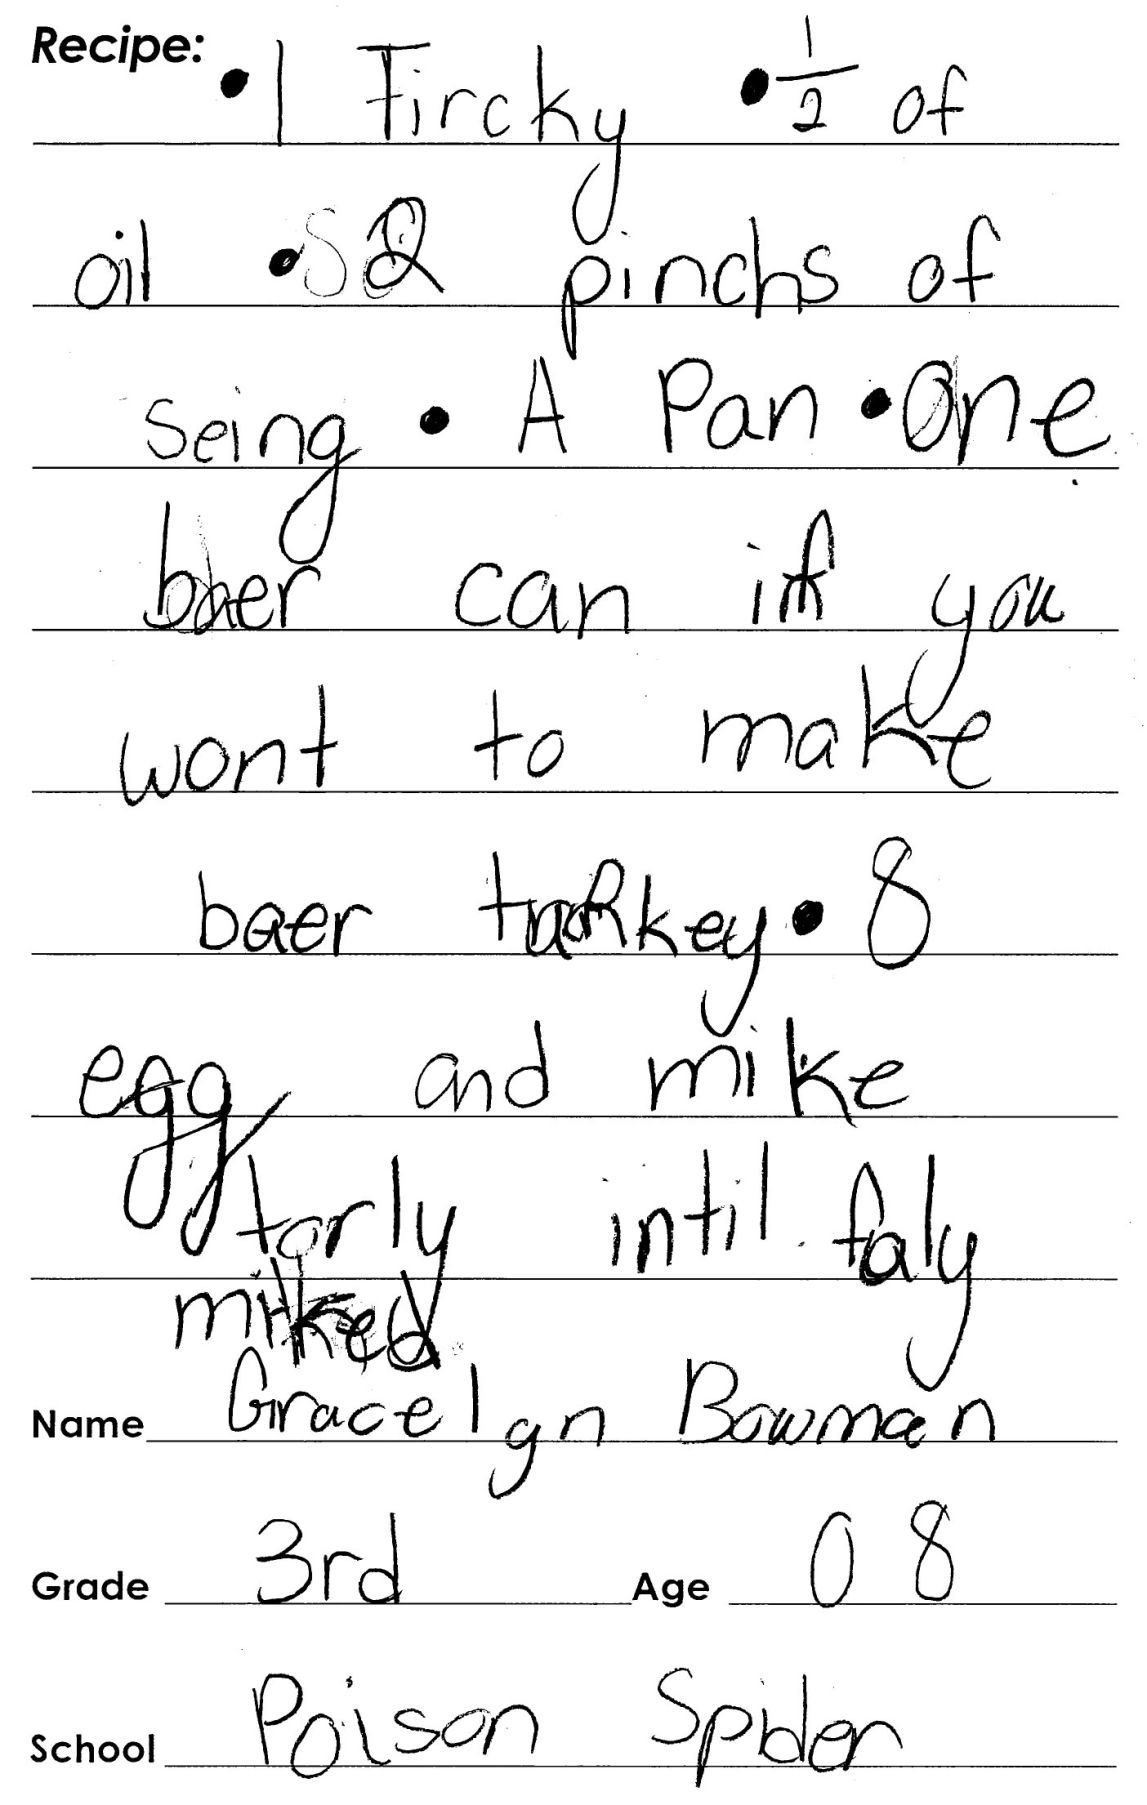 Recipe: •1 Tircky •1/2 of
oil •2 pinchs of
seing • A Pan •One
baer can if you
wont to make
baer turkey • 8
egg and mike
torly intil faly
miked
Name Gracelyn Bowman
Grade 3rd Age 08
School Poison Spider